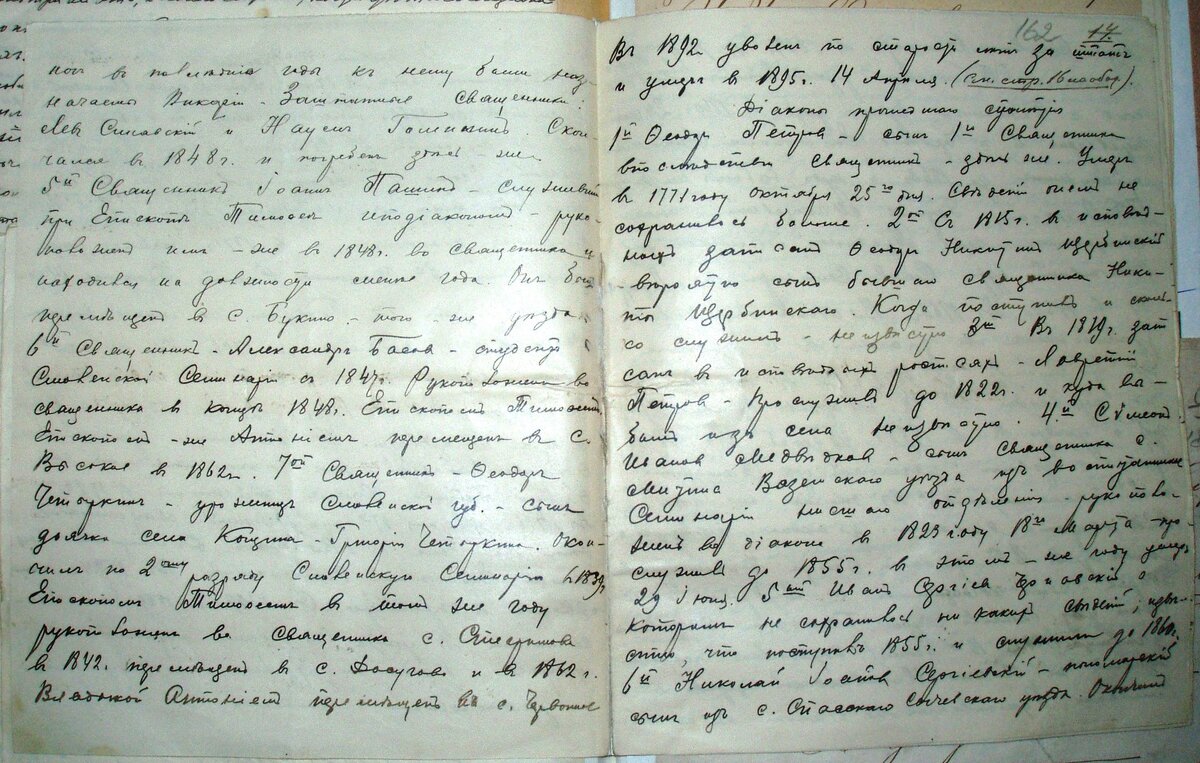 пои въ последние годы къ нему были наз-
начаемы Викарн - Заштатные священники:
Левъ Синявскій и Наумъ Скон-
чался въ 1848 г. и погребенъ здесь-же
5й Священникъ Іоаннъ Пашинъ - служившій
при Епископѣ Тимофеѣ иподіакономъ - руко-
положенъ имъ-же въ 1848 г. во священника и
находился на должности менее года. Онъ былъ
перемѣщенъ въ с. Букино - того-же уезда
6й Священникъ - Александръ Басовъ - студентъ
Смоленской Семинаріи съ 1847 г. Рукоположенъ во
священника въ концѣ 1848 г. Епископомъ Тимофеемъ
Епископомъ-же Антоніемъ перемещенъ въ с.
Высокое въ 1862 г. 7ой Священникъ - Ѳеодоръ
Четыркинъ - уроженецъ Смоленской губ. - сынъ
дьячка села - Григорія Четыркина. Окон-
чилъ по 2му разряду Смоленскую Семинарію въ 1839 г.
Епископомъ Тимофеемъ въ томъ же году
рукоположенъ во Священника с.
въ 1842 г. перемѣщенъ въ с. Досугово и въ 1862 г.
Владыкой Антоніемъ перемѣщенъ въ с. Червонное
162 17.
Въ 1892 г. уволенъ по старости лѣтъ за штатъ
и умеръ въ 1895 г. 14 Апреля. (см. стр. 16 на обор.).
Діаконы прошлаго столѣтія
1й Ѳеодоръ Петровъ - сынъ 1го Священника
впослѣдствіи Священникъ - здѣсь же. Умеръ
въ 1771 году октября 25го дня. Свѣдѣній о немъ не
сохранилось больше. 2ой Съ 1815 г. въ исповед-
ной записанъ Ѳеодоръ Никитинъ Щербинскій
- вероятно сынъ бывшаго священника Ники-
ты Щербинскаго. Когда поступилъ и сколь-
ко служилъ - неизвѣстно 3й Въ 1819 г. запи-
санъ въ исповедныхъ росписяхъ - Лаврентій
Петровъ - Прослужилъ до 1822 г. и куда вы-
былъ изъ села неизвѣстно. 4й Симеонъ
Ивановъ Медвѣдковъ - сынъ Священника с.
Митина Вяземскаго уѣзда изъ воспитанниковъ
Семинаріи низшаго отдѣленія - рукополо-
женъ во діакона въ 1823 году 18го Марта - про-
служилъ до 1855 г. въ этомъ-же году умеръ
29 Іюня. 5ый Иванъ Сергѣевъ о
которомъ не сохранилось никакихъ свѣденій, извѣ-
стно, что поступилъ 1855 г. и служилъ до 1860 г.
6й Николай Іоановъ Сергіевскій - пономарскій
сынъ изъ с. Спасскаго Сычевскаго уѣзда. Окончилъ